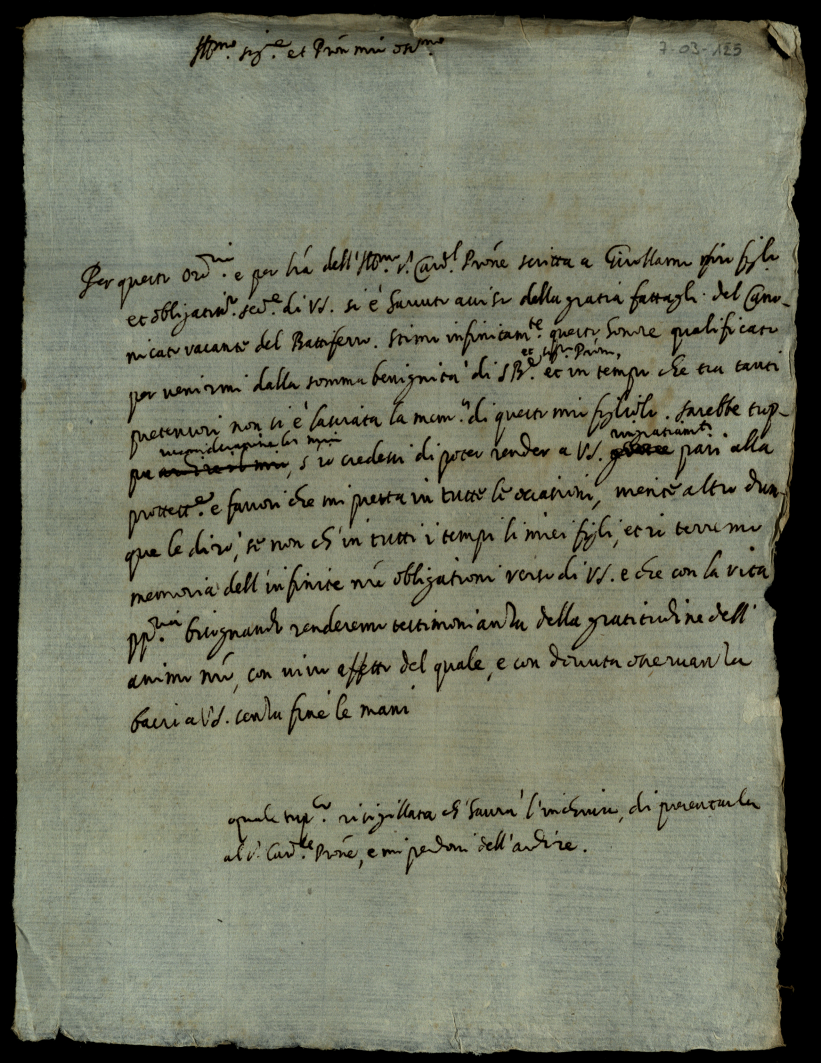 Ill.mo sig.re et Prōn mio oss.mo
7-03-125
Per questo ord.rio e per lrā dell'Ill.mo s.r Card.l Prōne scritta a Girollamo mio figlo
et obligatiss.o ser.re di VS. si è havuto aviso della gratia fattagli del Cano-
nicato vacante del Battiferro. Stimo infinitam.te questo honore qualificato
et Ill.mo Prōn,
per venirmi dalla somma benignità di S B.ne et in tempo che tra tanti
pretensori non si è lasciata la mem.a di questo mio figliolo. Sarebbe trop-
po, s'io credessi di poter render a VS. ringratiam.ti pari alla
prottett.ne e favori che mi presta in tutte le occasioni, mentre altro dun-
que le dirò, se non ch'in tutti i tempi li miei figli, et io terremo
memoria dell'infinite nrē obligationi verso di VS. e che con la vita
pp.ria bisognando renderemo testimonianza della gratitudine dell'
animo nrō, con vivo affetto del quale, e con dovuta osservanza
bacio a VS. senza fine le mani
quale sup.co risigillata ch'haurà l'inchiusa, di presentarla
al s.r Card.le Prōne, e mi perdoni dell'ardire.